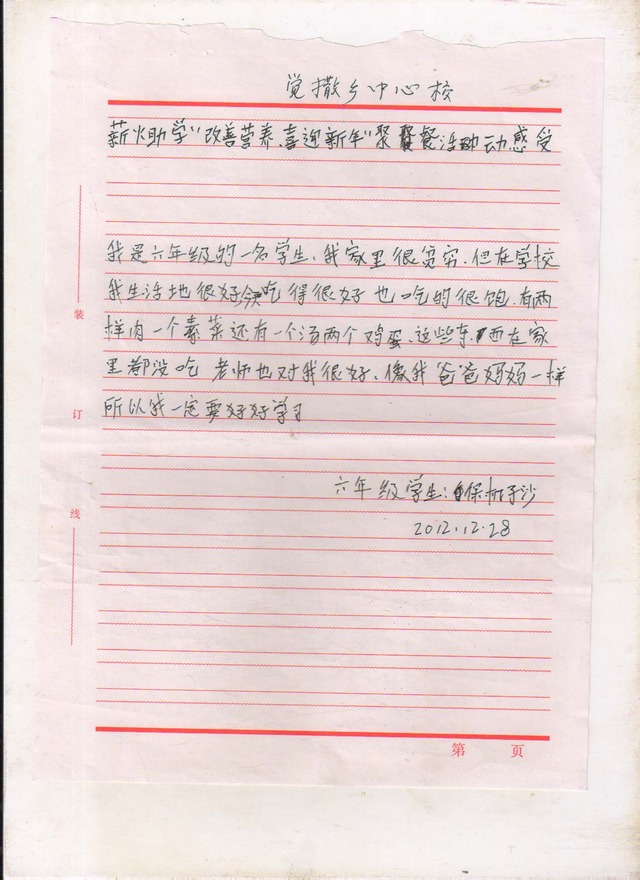 觉撒乡中心校
薪火助学"改善营养、喜迎新年"聚餐活动感受
我是六年级的一名学生、我家里很贫穷.但在学校
我生活地很好吃得很好也吃的很饱.有两
样肉一个素菜还有一个汤两个鸡蛋、这些东西在家
里都没吃 老师也对我很好、像我爸爸妈妈一样
所以我一定要好好学习
六年级学生：保子沙
2012.12.28
装
订
线
第 页